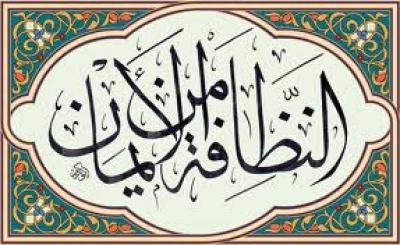 النَّظَافَةُ مِنَ الْإِيمَانِ